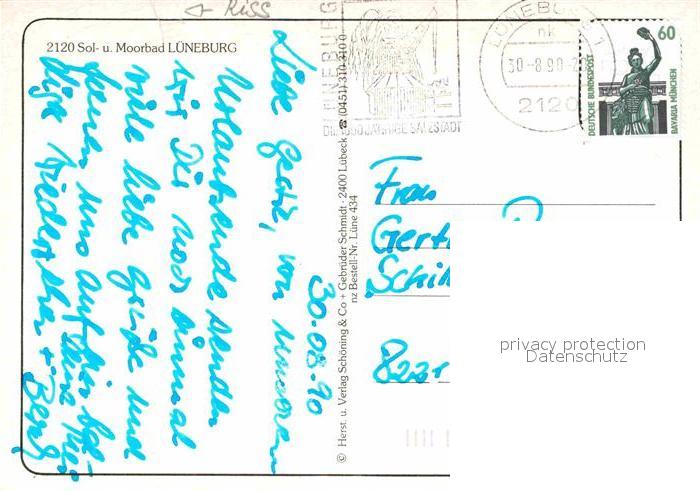 + Kiss
2120 Sol- u. Moorbad LÜNEBURG
30.08.90
Liebe Gerti, von unserem
Urlaubsende senden
wir Dir noch einmal
viele liebe Grüße und
freuen uns auf ein bal-
diges Wiedersehen
Deine
+ Bernd
© Herst. u. Verlag Schöning & Co + Gebrüder Schmidt · 2400 Lübeck ☎ (0451) 310 310 0
nz Bestell-Nr. Lüne 434
LÜNEBURG
DIE 1000JÄHRIGE SALZSTADT
LÜNEBURG 1
nk
30.-8.90-20
2120
60
DEUTSCHE BUNDESPOST
BAVARIA MÜNCHEN
Frau
Gert
Schi
822
privacy protection
Datenschutz